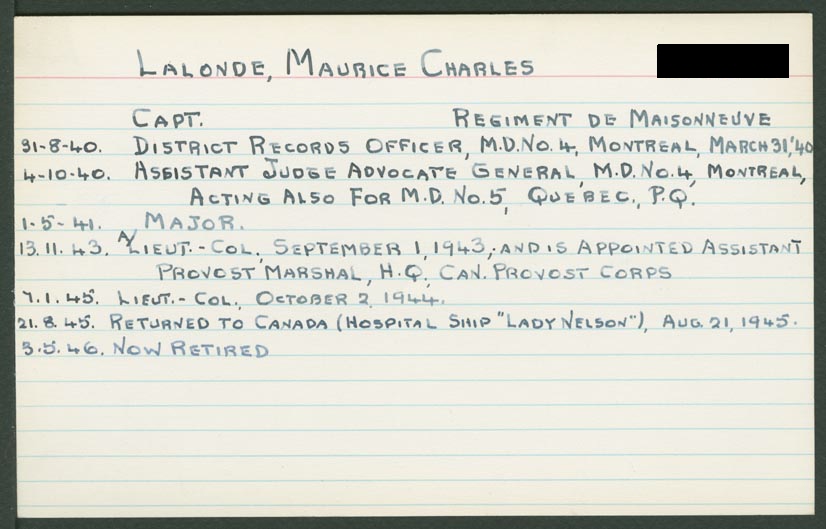 LALONDE, MAURICE CHARLES
CAPT. REGIMENT DE MAISONNEUVE
31-8-40. DISTRICT RECORDS OFFICER, M.D. NO. 4, MONTREAL, MARCH 31,'40
4-10-40. ASSISTANT JUDGE ADVOCATE GENERAL, M.D. NO. 4, MONTREAL,
ACTING ALSO FOR M.D. NO. 5, QUEBEC, P.Q.
1-5-41. MAJOR.
13.11.43. A/LIEUT.-COL., SEPTEMBER 1, 1943, AND IS APPOINTED ASSISTANT
PROVOST MARSHAL, H.Q. CAN. PROVOST CORPS
7.1.45. LIEUT.-COL., OCTOBER 2, 1944.
21.8.45. RETURNED TO CANADA (HOSPITAL SHIP "LADY NELSON"), AUG. 21, 1945.
3.5.46. NOW RETIRED